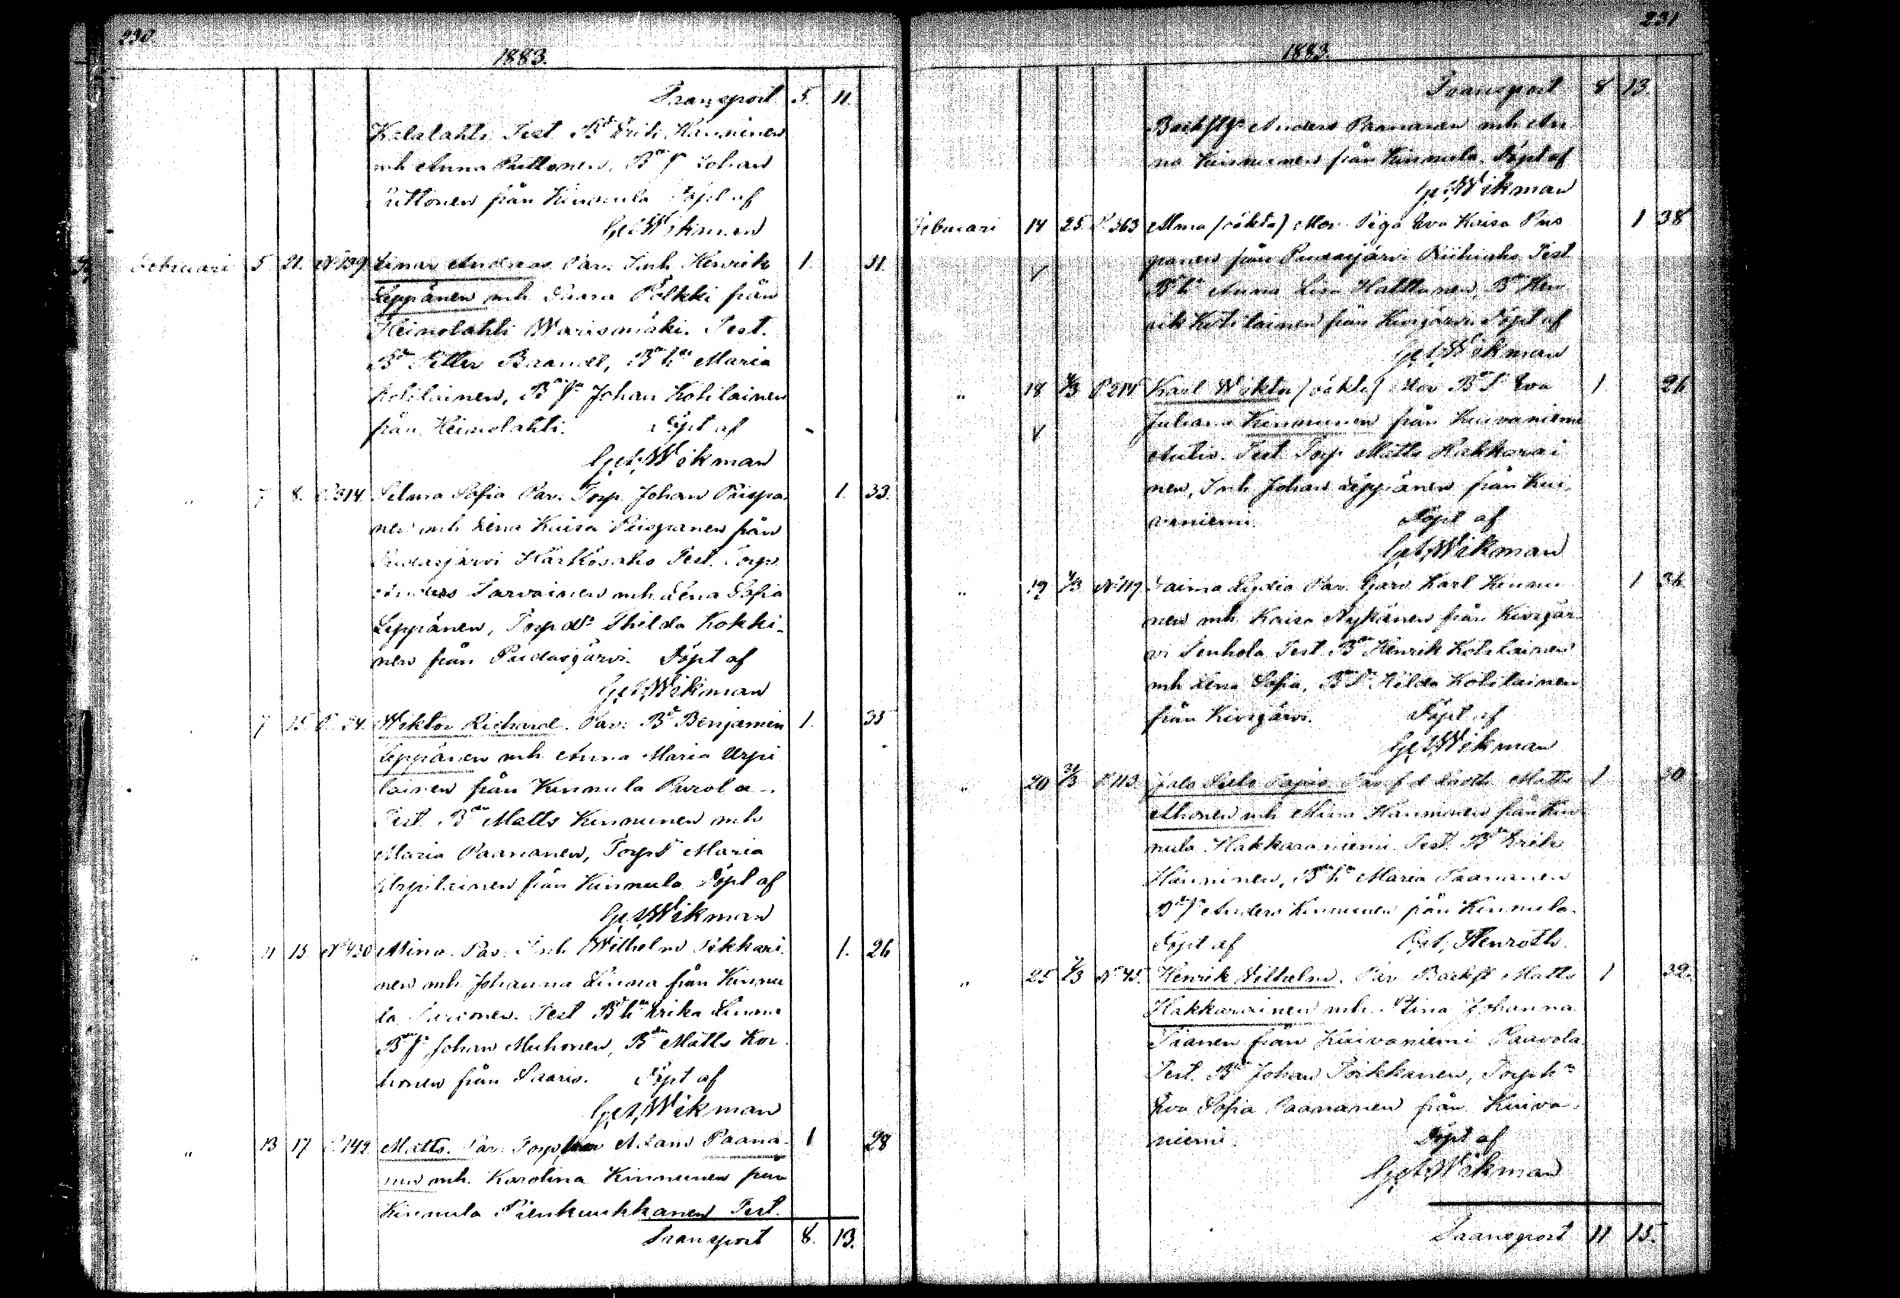 230
1883.
Transport 5. 11.
Kalalahti. Test. Bd Erik Hänninen
mh Anna Puttonen, Bdes Johan
Puttonen från Kinnula Döpt af
Get, Wikman
Februari 5 21. No 139 Einar Andreas Par: Inh Henrik 1. 31.
Leppänen mh Saara Pölkki från
Heinolahti Warismäki. Test.
Bd Petter Brandt, Bdeh Maria
Kotilainen, Bdes Johan Kotilainen
från Heinolahti. Döpt af
Get, Wikman
" 7 8. P. 314 Selma Sofia Par: Torp. Johan Piispa- 1. 33.
nen mh Lena Kaisa Piispanen från
Pudasjärvi Härkösaho Test. Torp.
Anders Tarvainen mh Lena Sofia
Leppänen, Torpds Thilda Kokki-
nen från Pudasjärvi. Döpt af
Get, Wikman
" 7 15 P. 54. Wiktor Richard. Par: Bd Benjamin 1. 35
Leppänen mh Anna Maria Urpi
lainen från Kinnula Purola.
Test. Bden Matts Kinnunen mh
Maria Paananen, Torpds Maria
Urpilainen från Kinnula Döpt af
Get, Wikman
" 11 15 No 430 Mina. Par: Inh Wilhelm Pekkari 1. 26
nen mh Johanna Linna från Kinnu
la Test Bdeh Erika
Bdes Johan Muhonen, Bden Matts Kor
honen från Saaris. Döpt af
Get, Wikman
" 13 17 P. 142 Matts. Par: Torp Adam Paana- 1 28
nen mh. Karolina Kinnunen från
Kinnula Test.
Transport 8. 13.
231
1883.
Transport 8 13.
Backstg Anders Paananen mh An
na Kinnunen från Kinnula. Döpt af
Get, Wikman
Februari 14 25. P. 363 Alma (oäkta) Mor: Piga Eva Kaisa Piis 1 38
panen från Pudasjärvi Riihiaho Test
Bdeh Anna Lisa Hakkanen, Bden Hen
rik Kotilainen från Kivijärvi. Döpt af
Get, Wikman
" 18 4/3 P 214 Karl Wiktor (oäkta) Mor Bds Eva 1 26
Juliana Kinnunen från Kuivaniemi
Autio. Test. Torp Matts Hakkarai
nen, Inh Johan Leppänen från Kui
vaniemi. Döpt af
Get, Wikman
" 19 4/3 No 119 Saima Lydia Par. Garv Karl Kinnu 1 36
nen mh Kaisa Nykänen från Kivijär
vi Test. Bden Henrik Kotilainen
mh Lena Sofia, Bds Hilda Kotilainen
från Kivijärvi. Döpt af
Get, Wikman
" 20 31/3 P. 113. Par f d Matts 1 30
Ahonen mh Mina Hänninen från Kin
nula Hakkaraniemi. Test. Bd Erik
Hänninen, Bdeh Maria Paananen
Bdes Anders Kinnunen från Kinnula.
Döpt af Get, Stenroth.
" 25 4/3 No 45. Henrik Vilhelm. Par Backst Matts 1 32.
Hakkarainen mh. Stina Johanna
Piianen från Kuivaniemi Paavola
Test. Bd Johan Poikkanen, Torph
Eva Sofia Paananen från Kuiva-
niemi. Döpt af
Get, Wikman
Transport 11 15.